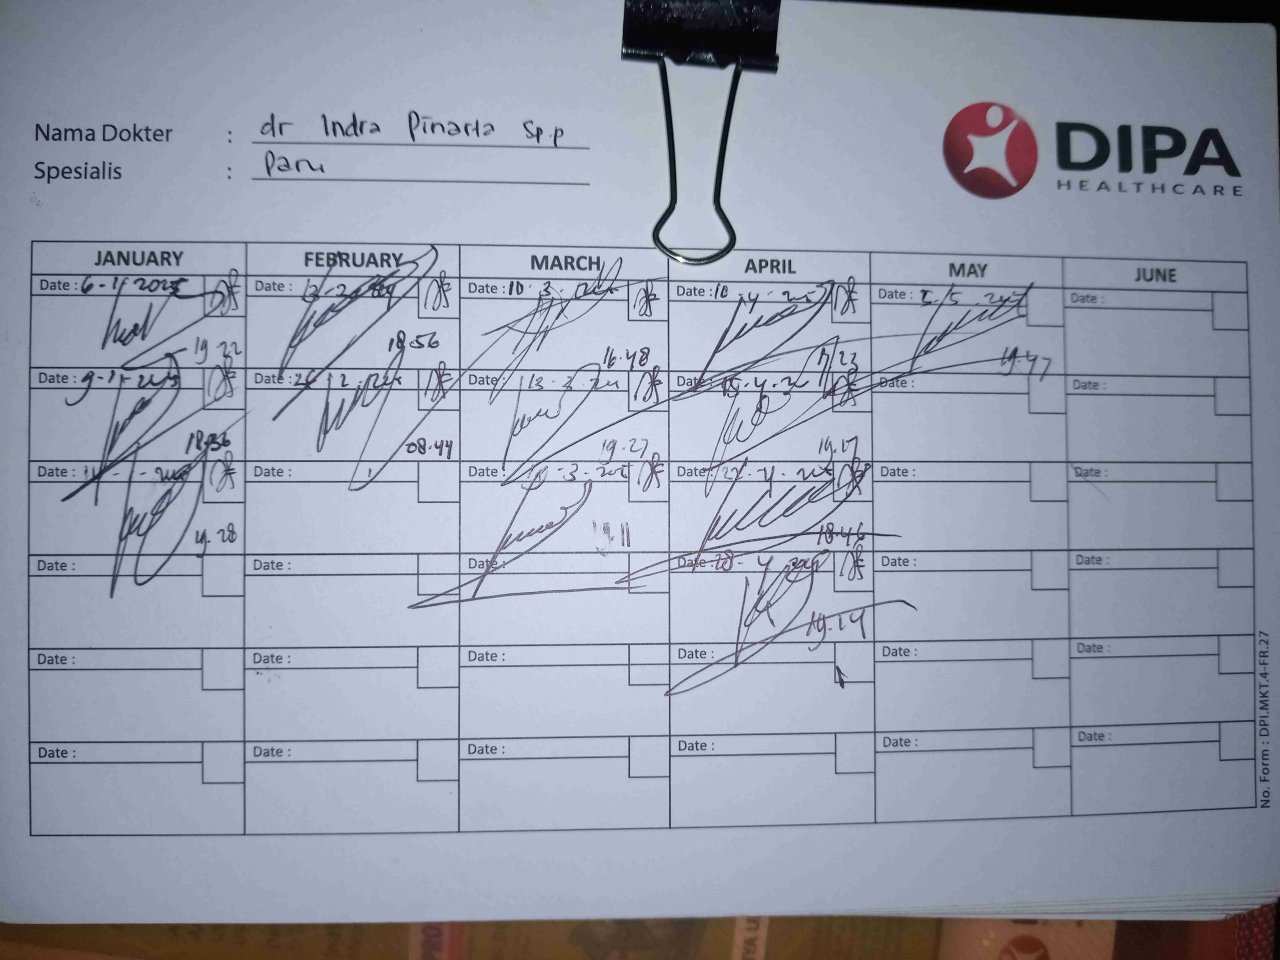 Nama Dokter : dr Indra Pinaria Sp.p
Spesialis : Paru
DIPA
HEALTHCARE
JANUARY FEBRUARY MARCH APRIL MAY JUNE
Date : 6-1-2025 Date : 13-2- Date : 10-3- Date : 10-4-2025 Date : 5-5-2025 Date :
19.22 18.56 16.48 17.23 19.47
Date : 9-1-2025 Date : 26-2- Date : 13-3- Date : 15-4- Date : Date :
18.56 08.44 19.27 19.17
Date : 14-1- Date : Date : -3-2025 Date : 22-4-2025 Date : Date :
19.28 19.11 18.46
Date : Date : Date : Date : 28-4-2025 Date : Date :
19.14
Date : Date : Date : Date : Date : Date :
Date : Date : Date : Date : Date : Date :
No. Form : DPI.MKT.4-FR.27